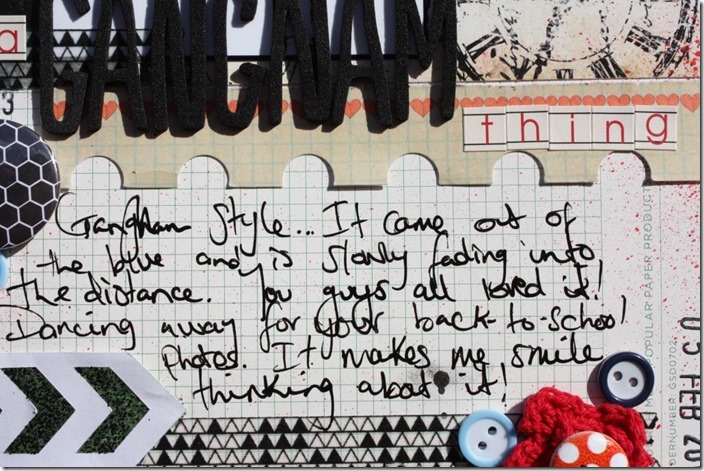 a GANGNAM
thing
3
Gangnam Style... It came out of
the blue and is slowly fading into
the distance. You guys all loved it!
Dancing away for your back-to-school
photos. It makes me smile
thinking about it!
OPULAR PAPER PRODUC
DERNUMBER GS00702
05 FEB 20